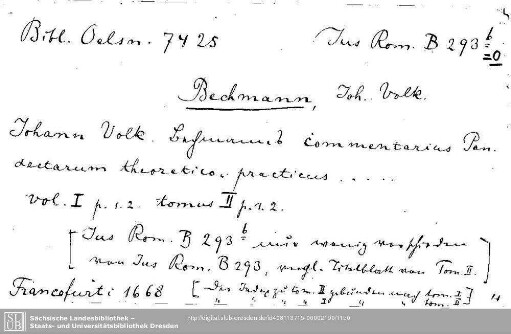 Bibl. Oelsn. 7425 Jus Rom. B 293 b
=0
Bechmann, Joh. Volk.
Johann Volk. Bechmanns commentarius Pan-
dectarum theoretico-practicus .....
vol. I p. 1.2. tomus II p. 1.2.
[Jus Rom. B 293 b nur wenig verschieden
von Jus Rom. B 293, vergl. Titelblatt von Tom. II.]
Francofurti 1668 [Der Index zu tom. II gebunden nach tom. I]
" " " " II " " tom. II
Sächsische Landesbibliothek –
Staats- und Universitätsbibliothek Dresden